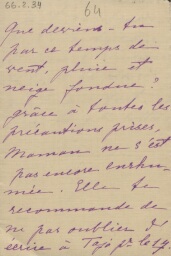 66-2.34
64
Que deviens-tu
par ce temps de
vent, pluie et
neige fondue ?
grâce à toutes les
précautions prises,
Maman ne s'est
pas encore enrhu-
mée. Elle te
recommande de
ne pas oublier d'
écrire à